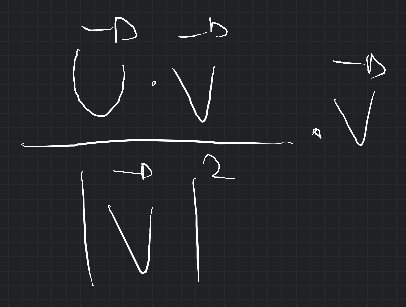 \frac{\vec{U} \cdot \vec{V}}{|\vec{V}|^2} \cdot \vec{V}